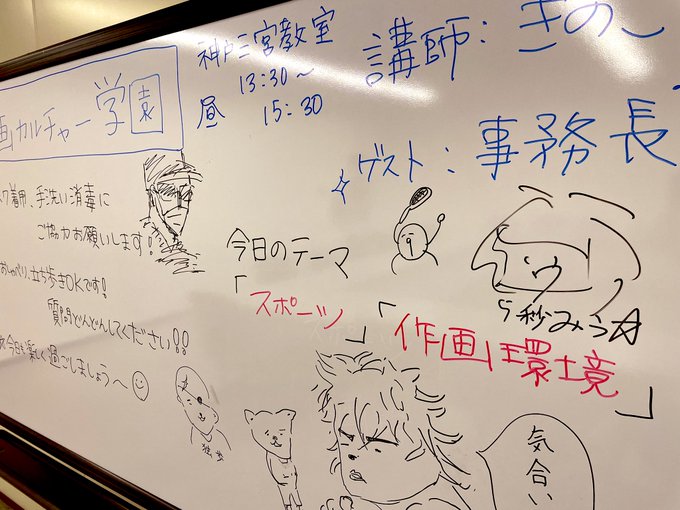 画カルチャー学園
神戸三宮教室
昼 13:30〜
15:30
講師：きのこ
ゲスト：事務長
スク着用、手洗い消毒に
ご協力お願いします！
おしゃべり、立ち歩きOKです！
質問どんどんしてください!!
今日も楽しく過ごしましょう〜
今日のテーマ
「スポーツ」
「作画環境」
5秒みう☆
気合い